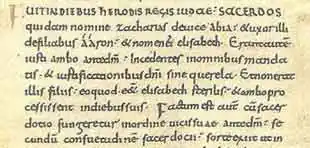 FUITINDIEBUS hERODIS REGIS IUDAE· SACERDOS
quidam nomine zacharias deuice abia· & uxor illi
defiliabus aaron· & nomen ei elisabeth· Erantautem
iusti ambo antedm̄· Incedentes inomnibus manda
tis· & iustificationibus dn̄i sine querela· Et non erat
illis filius· eo quod e&& elisabeth sterilis· & ambo pro
cessissent indiebus suis· Factum est aut̄ cū sacer
dotio fungeretur inordine uicis suae antedm̄· se
cundū consuetudinē sacerdotii· sorte exiit ut in